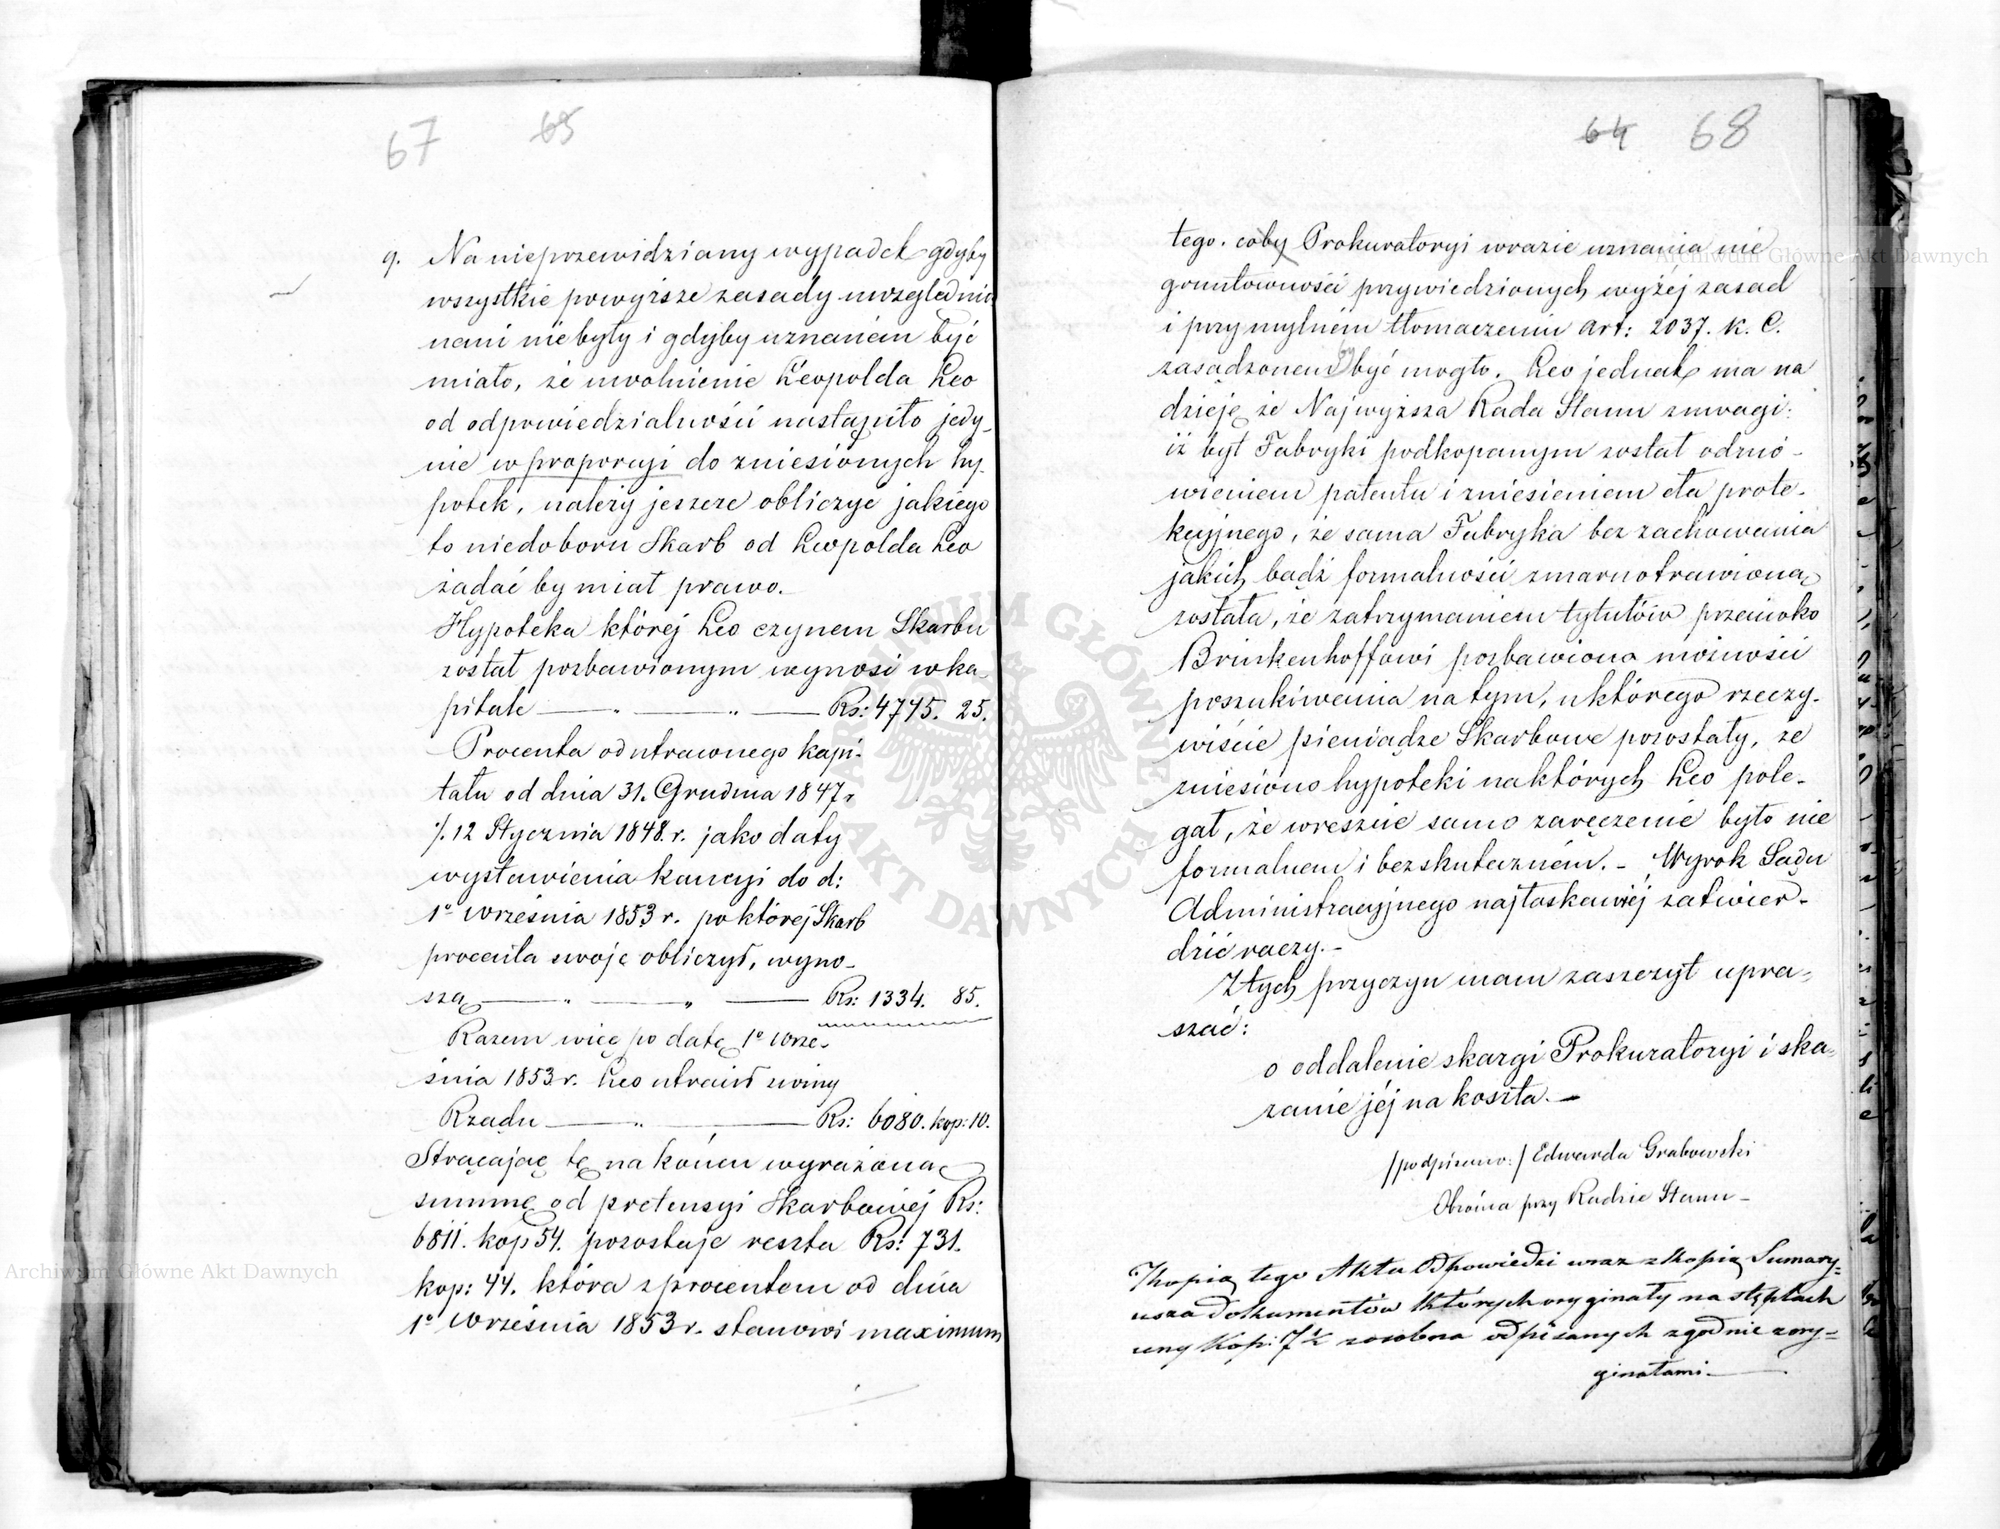 67 65
9. Na nieprzewidziany wypadek gdyby
wszystkie powyższe zasady uwzględnio
nemi niebyły i gdyby uznaném być
miało, że uwolnienie Leopolda Leo
od odpowiedzialności nastąpiło jedy-
nie w proporcyi do zniesionych hy-
potek, należy jeszcze obliczyć jakiego
to niedoboru Skarb od Leopolda Leo
żądać by miał prawo.-
Hypoteka której Leo czynem Skarbu
został pozbawionym wynosi w ka-
pitale — „ — „ — Rs: 4745. 25.
Procenta od utraconego kapi-
tału od dnia 31. Grudnia 1847 r
/. 12 Stycznia 1848. r. jako daty
wystawienia kaucyi do d:
1º Września 1853 r. po której Skarb
procenta swoje obliczył, wyno-
szą — „ — „ — Rs: 1334. 85.
Razem więc po datę 1º Wrze-
śnia 1853 r. Leo utracił z winy
Rządu — „ — Rs: 6080. kop: 10.
Strącając tę na końcu wyrażoną
summę od pretensyi Skarbowej Rs:
6811. kop 54. pozostaje reszta Rs: 731.
kop: 44. która z procentem od dnia
1º Września 1853 r. stanowi maximum
64 68
tego. coby Prokuratoryi wrazie uznania nie
gruntowności przywiedzionych wyżéj zasad
i przy mylném tłomaczeniu art: 2037. K. C.
zasądzonem by być mogło. Leo jednak ma na
dzieję że Najwyższa Rada Stanu z uwagi:
iż byt Fabryki podkopanym został odmó-
wieniem patentu i zniesieniem cła prote-
kcyjnego, że sama Fabryka bez zachowania
jakich bądź formalności zmarnotrawioną
została, że zatrzymaniem tytułów przeciwko
Brinkenhoffowi pozbawiono możności
poszukiwania na tym, u którego rzeczy-
wiście pieniądze Skarbowe pozostały, że
zniesiono hypoteki na których Leo pole-
gał, że wreszcie samo zaręczenie było nie
formalnem i bezskuteczném. - Wyrok Sądu
Administracyjnego najłaskawiéj zatwier-
dzić raczy.-
Z tych przyczyn mam zaszczyt upra-
szać:
o oddalenie skargi Prokuratoryi i ska-
zanie jéj na koszta.-
/podpisano:/ Edwarda Grabowski
Obrońca przy Radzie Stanu-
Kopia tego Aktu Odpowiedzi wraz z kopią Sumary-
usza dokumentów których oryginały na stęplach
ceny Kop: 7½ zosobna odpisanych zgodnie z ory-
ginałami.-
Archiwum Główne Akt Dawnych
Archiwum Główne Akt Dawnych
ARCHIWUM GŁÓWNE AKT DAWNYCH